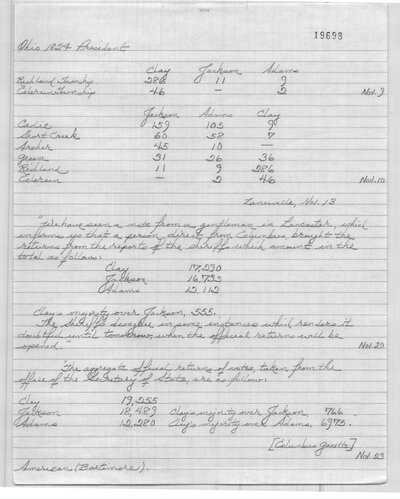 19698
Ohio 1824 President
Clay Jackson Adams
Richland Township 286 11 9
Colerain Township 46 — 2 Nov. 9
Jackson Adams Clay
Cadiz 159 105 9
Short Creek 60 58 7
Archer 45 10 —
Green 31 26 36
Richland 11 9 286
Colerain — 2 46 Nov. 10
Zanesville, Nov. 13
"We have seen a note from a gentleman in Lancaster, which
informs us that a person, direct from Columbus, brought the
returns from the reports of the sheriffs which amount in the
total as follows:
Clay 17,290
Jackson 16,735
Adams 12,112
Clay's majority over Jackson, 555.
The Sheriffs disagree in some instances which renders it
doubtful until tomorrow, when the official returns will be
opened." Nov. 20
"The aggregate official returns of votes, taken from the
office of the Secretary of State, are as follow:
Clay 19,255
Jackson 18,489 Clay's majority over Jackson, 766
Adams 12,280 Clay's majority over Adams, 6975."
[Columbus Gazette]
Nov. 23
American (Baltimore).